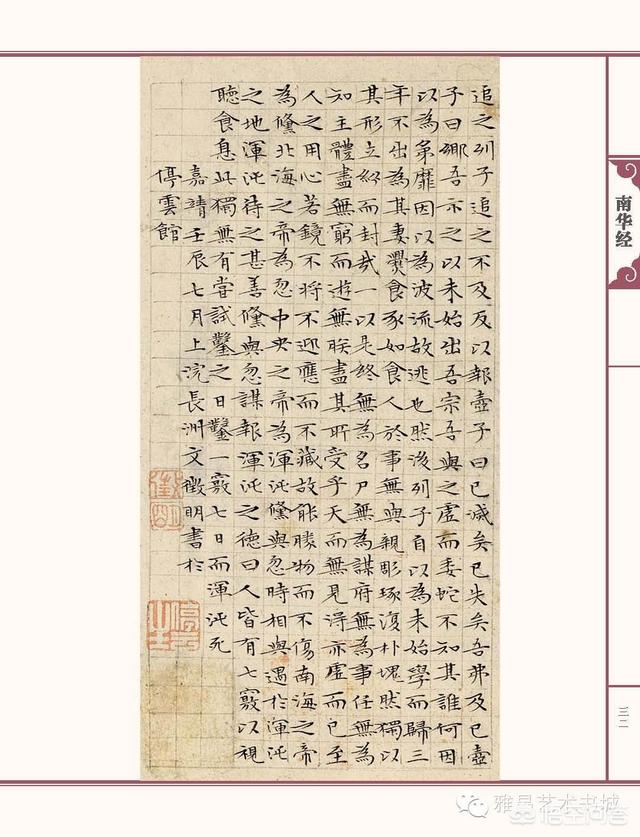 追之列子追之不及反以報壺子曰已滅矣已失矣吾弗及已壺
子曰鄉吾示之以未始出吾宗吾與之虛而委蛇不知其誰何因
以為苐靡因以為波流故逃也然後列子自以為未始學而歸三
年不出為其妻爨食豕如食人於事無與親彫琢復朴塊然獨以
其形立紛而封哉一以是終無為名尸無為謀府無為事任無為
知主體盡無窮而遊無朕盡其所受乎天而無見得亦虛而已至
人之用心若鏡不將不迎應而不藏故能勝物而不傷南海之帝
為儵北海之帝為忽中央之帝為渾沌儵與忽時相與遇於渾沌
之地渾沌待之甚善儵與忽謀報渾沌之德曰人皆有七竅以視
聽食息此獨無有嘗試鑿之日鑿一竅七日而渾沌死
嘉靖壬辰七月上浣長洲文徵明書於
停雲館
徵明
南华经
三二
雅昌艺术书城
悟空问答